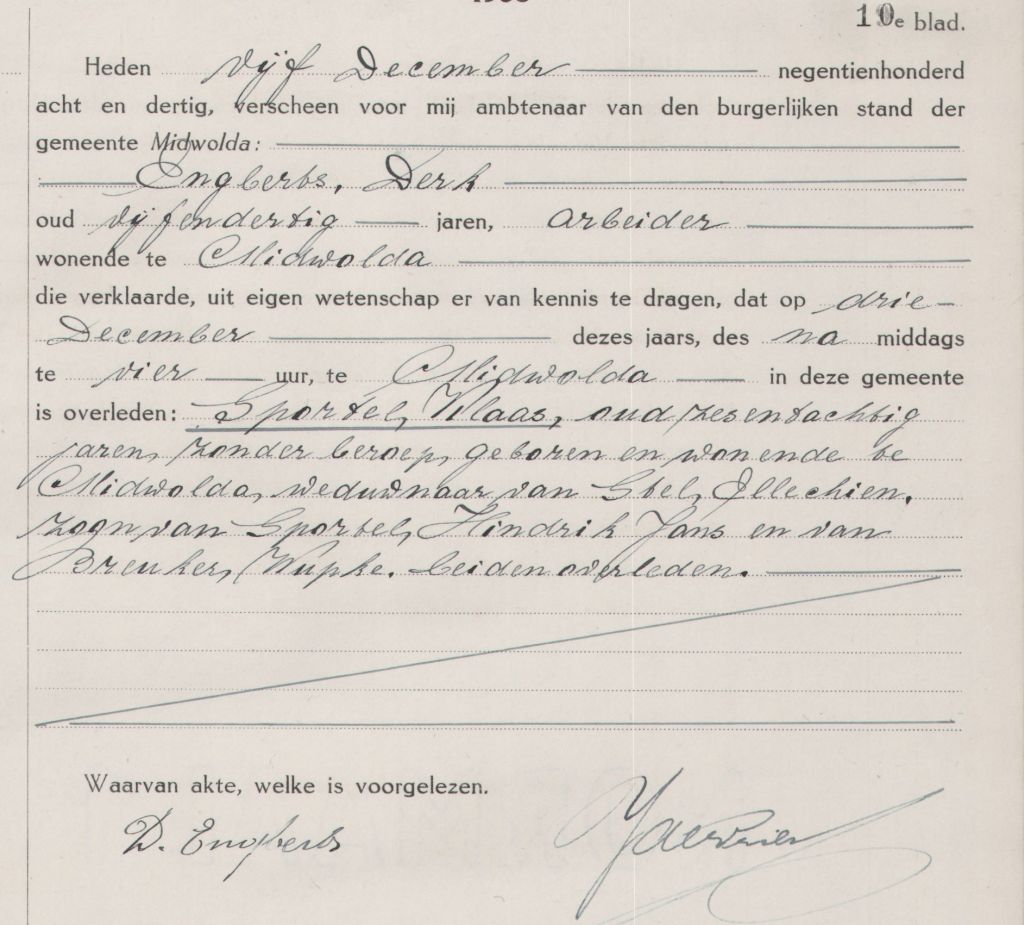 10e blad.
Heden vijf December negentienhonderd
acht en dertig, verscheen voor mij ambtenaar van den burgerlijken stand der
gemeente Midwolda:
Engberts, Derk
oud vijfendertig jaren, arbeider
wonende te Midwolda
die verklaarde, uit eigen wetenschap er van kennis te dragen, dat op drie
December dezes jaars, des na middags
te vier uur, te Midwolda in deze gemeente
is overleden: Sportel, Klaas, oud zesentachtig
jaren, zonder beroep, geboren en wonende te
Midwolda, weduwnaar van Stel, Jllechien.
zoon van Sportel, Hindrik Jans en van
Breuker, Wupke. beiden overleden.
Waarvan akte, welke is voorgelezen.
D. Engberts